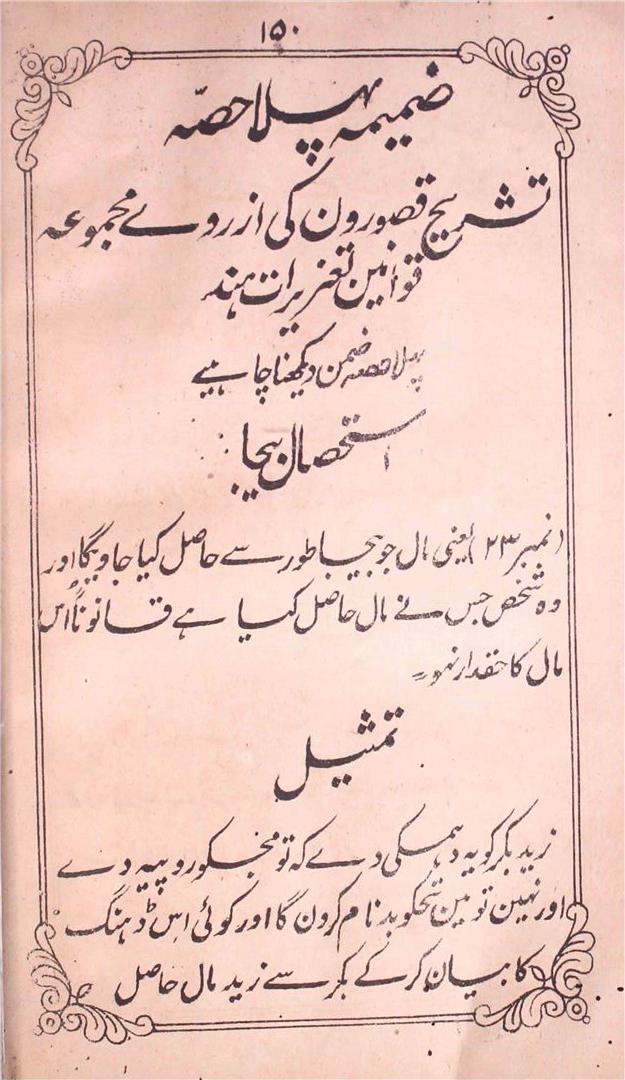 ۱۵۰
ضمیمہ پہلا حصّہ
تشریح قصورون کی از روے مجموعہ
قوانین تعزیرات ہند
پہلا حصہ ضمن دیکھنا چاہیے
استحصال بیجا
(نمبر ۲۳) یعنی مال جو بیجا طور سے حاصل کیا جاویگا اور
وہ شخص جس نے مال حاصل کیا ہے قانوناً اُس
مال کا حقدار نہو۔
تمثیل
زید بکر کو یہ دہمکی دے کہ تو مجھکو روپیہ دے
اور نہین تو مین تجھکو بدنام کرون گا اور کوئی اس ڈہنگ
کا بیان کر کے بکر سے زید مال حاصل